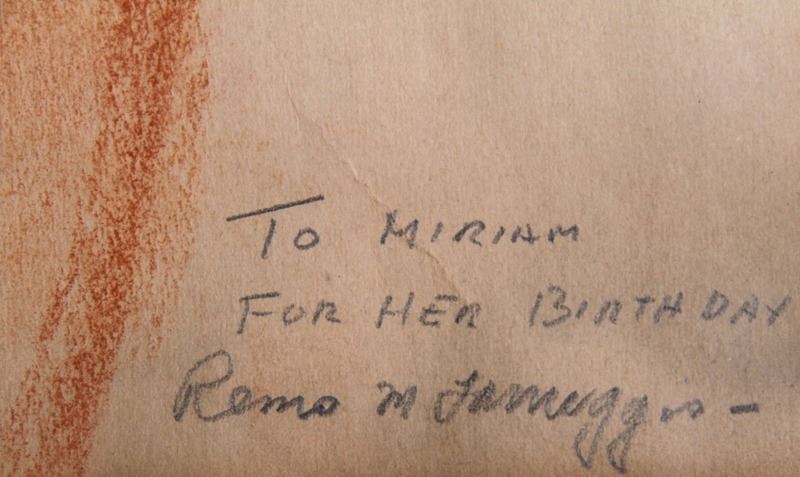 To MIRIAM
FOR HER BIRTHDAY
Remo M Farruggio -